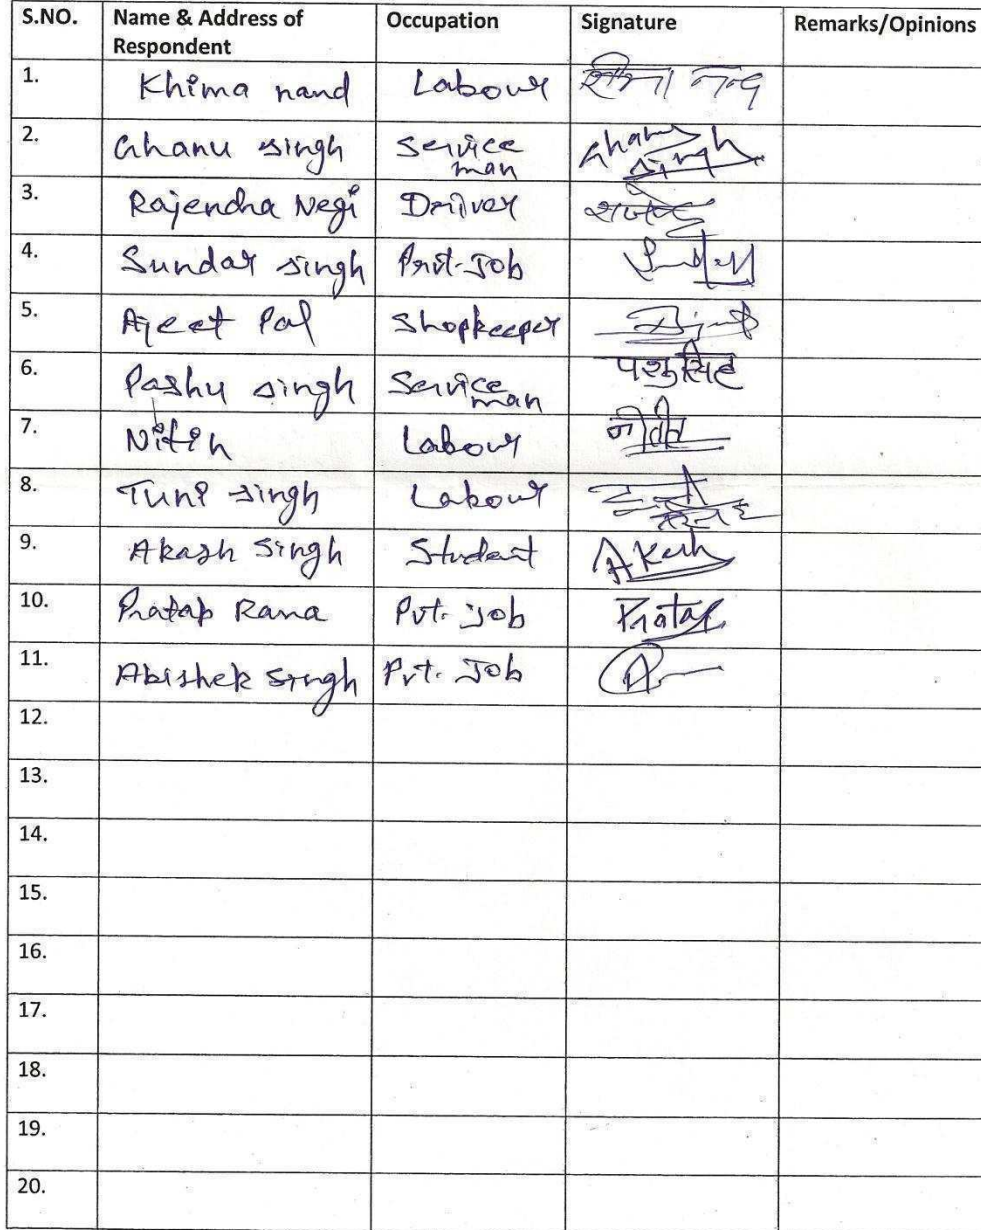 S.NO. Name & Address of Respondent Occupation Signature Remarks/Opinions
1. Khima nand Labour
2. Ghanu singh Service man Ghanu singh
3. Rajendra Negi Driver
4. Sundar singh Privt-Job
5. Ajeet Pal Shopkeeper Ajeet
6. Pashu singh Service man पशु सिंह
7. Nitin Labour नीतीन
8. Tuni singh Labour
9. Akash Singh Student Akash
10. Pratap Rana Pvt. Job Pratap
11. Abishek Singh Pvt. Job
12.
13.
14.
15.
16.
17.
18.
19.
20.